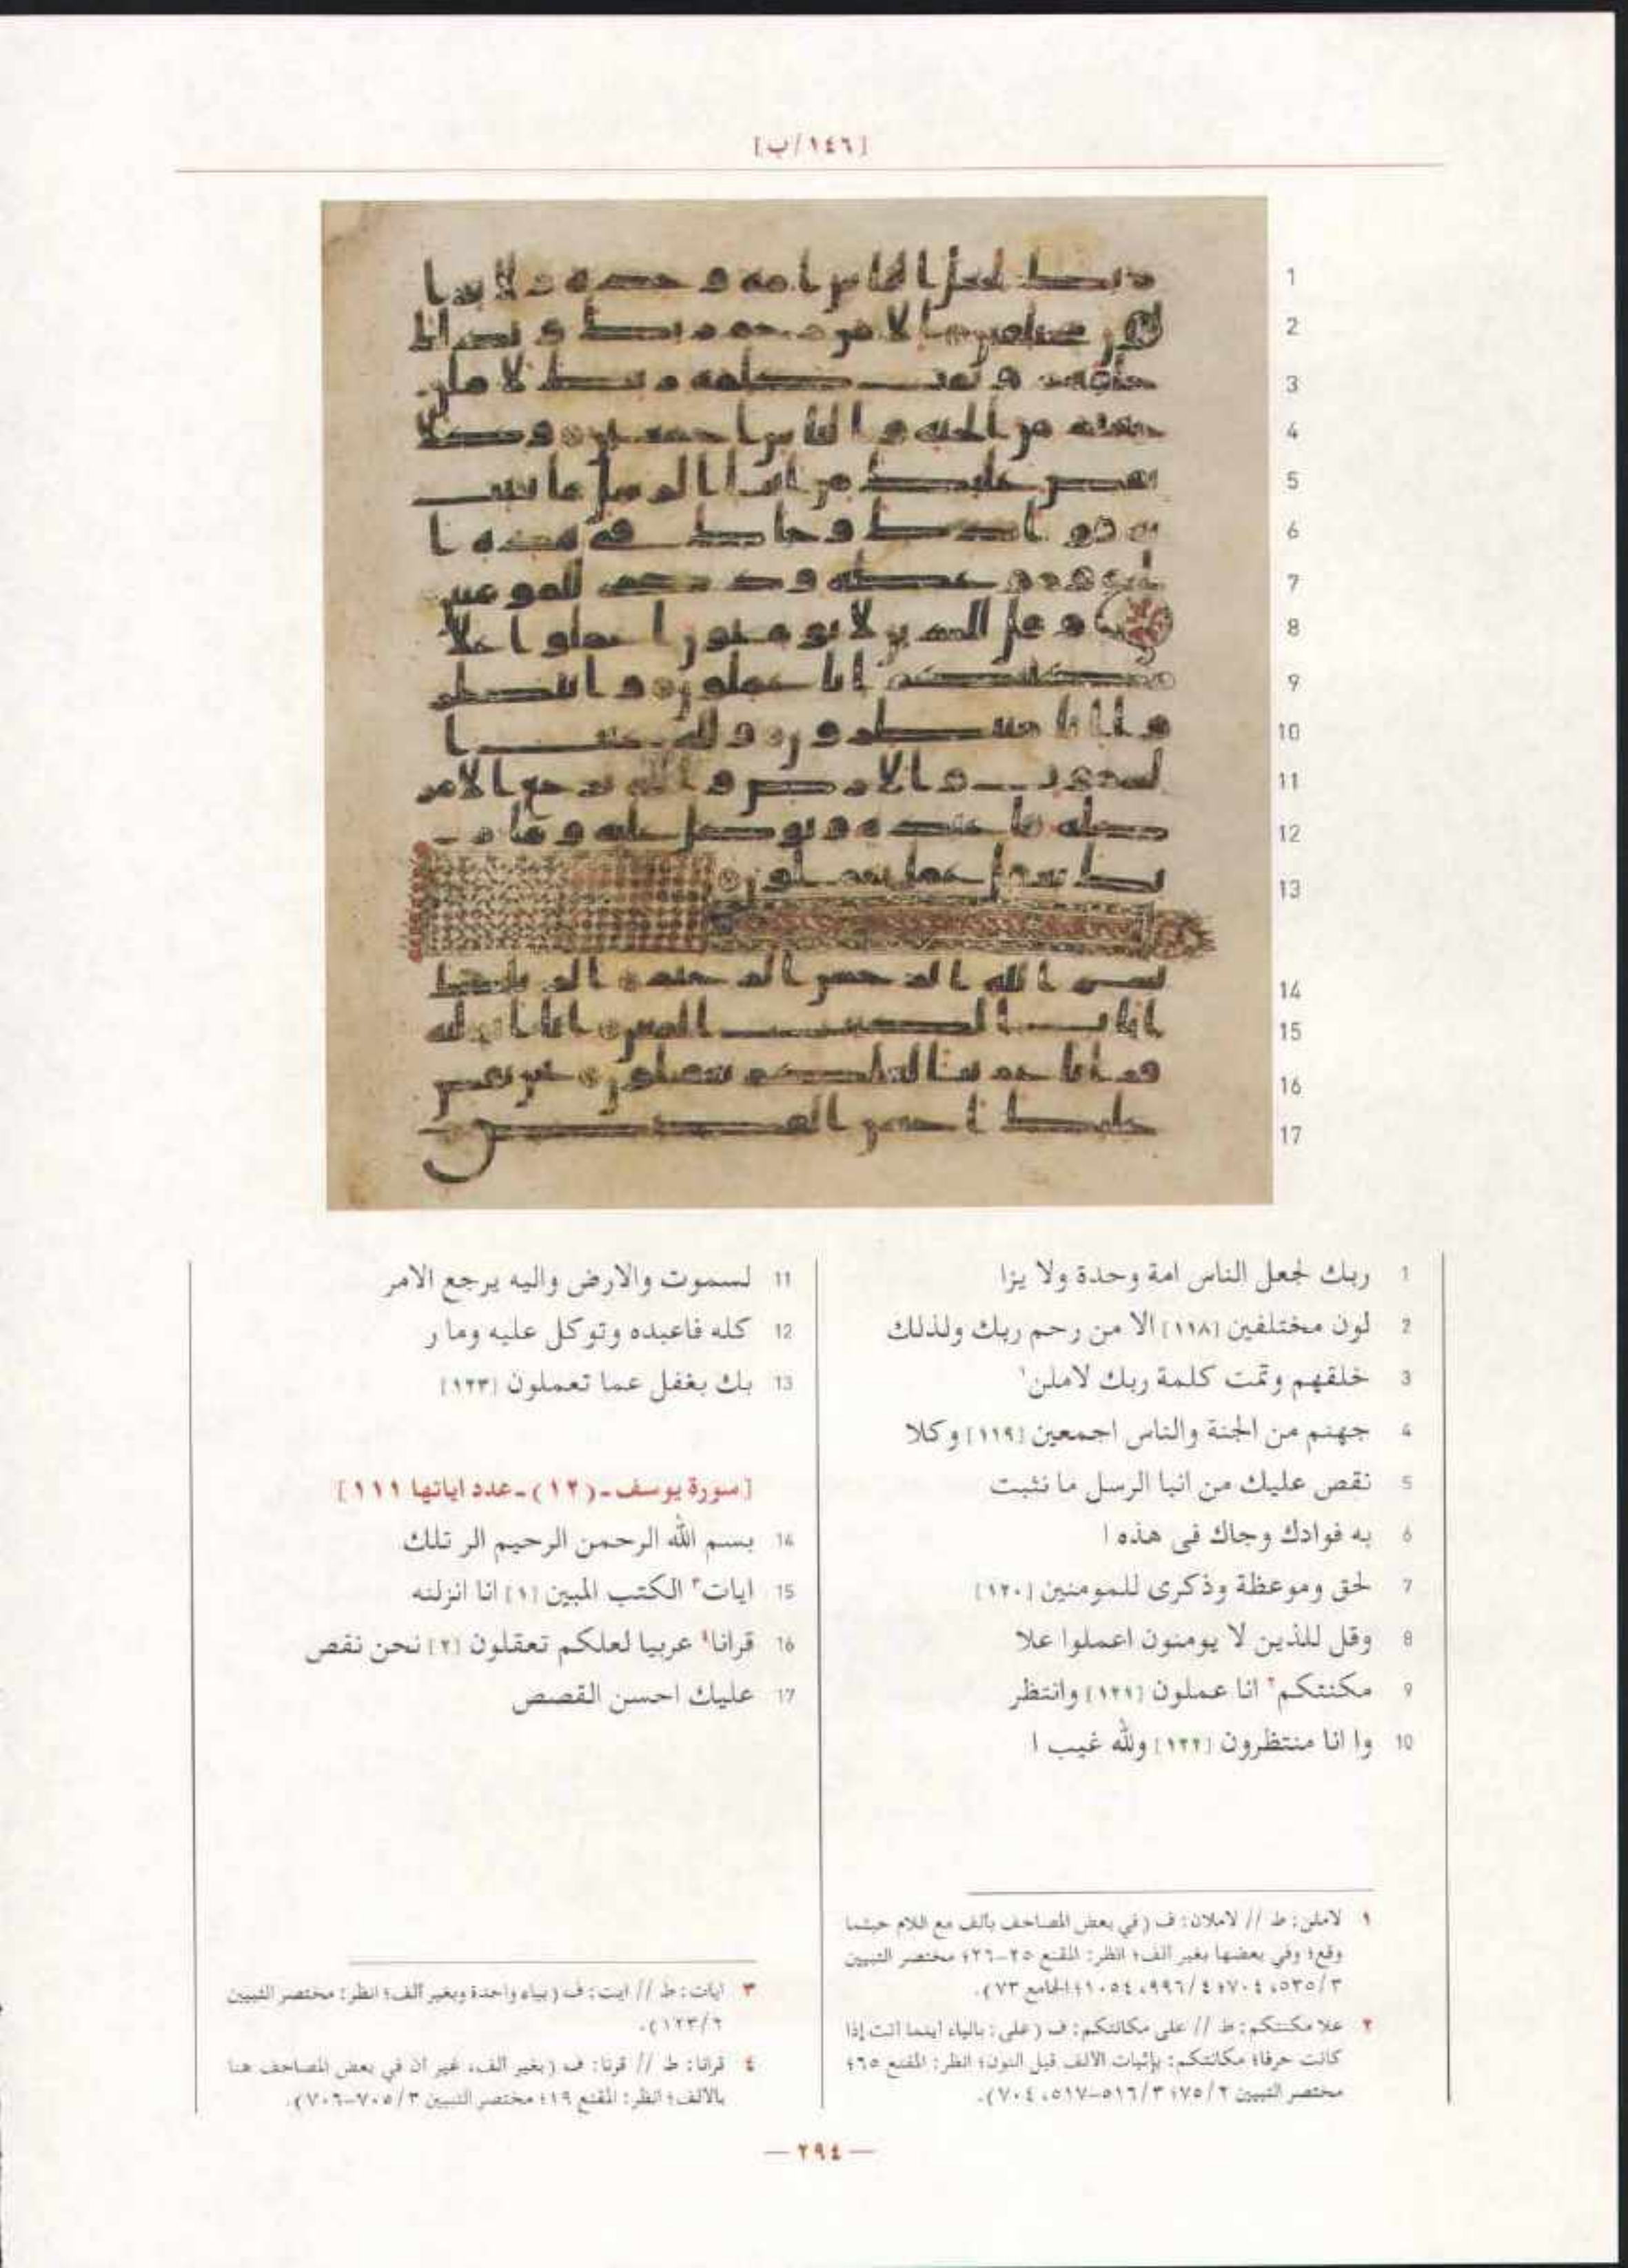 [١٤٦/ب]
1 ربك لجعل الناس امة وحدة ولا يزا
2 لون مختلفين [١١٨] الا من رحم ربك ولذلك
3 خلقهم وتمت كلمة ربك لاملن١
4 جهنم من الجنة والناس اجمعين [١١٩] وكلا
5 نقص عليك من انبا الرسل ما نثبت
6 به فوادك وجاك فى هذه ا
7 لحق وموعظة وذكرى للمومنين [١٢٠]
8 وقل للذين لا يومنون اعملوا علا
9 مكنتكم٢ انا عملون [١٢١] وانتظر
10 وا انا منتظرون [١٢٢] ولله غيب ا
11 لسموت والارض واليه يرجع الامر
12 كله فاعبده وتوكل عليه وما ر
13 بك بغفل عما تعملون [١٢٣]
[سورة يوسف - (١٢) - عدد اياتها ١١١]
14 بسم الله الرحمن الرحيم الر تلك
15 ايات٣ الكتب المبين [١] انا انزلنه
16 قرانا٤ عربيا لعلكم تعقلون [٢] نحن نقص
17 عليك احسن القصص
١ لاملن: ط // لاملان: ف (في بعض المصاحف بألف مع اللام حيثما
وقع؛ وفي بعضها بغير الف؛ انظر: المقنع ٢٥-٢٦؛ مختصر التبيين
٥٣٥/٣، ٧٠٤؛ ٩٩٦/٤، ١٠٥٤؛ الجامع ٧٣).
٢ علا مكنتكم: ط // على مكانتكم: ف (على: بالياء أينما أتت إذا
كانت حرفا؛ مكانتكم: بإثبات الالف قبل النون؛ انظر: المقنع ٦٥؛
مختصر التبيين ٧٥/٢؛ ٥١٦/٣-٥١٧، ٧٠٤).
٣ ايات: ط // ايت: ف (بياء واحدة وبغير ألف؛ انظر: مختصر التبيين
١٢٣/٢).
٤ قرانا: ط // قرنا: ف (بغير ألف، غير أن في بعض المصاحف هنا
بالالف؛ انظر: المقنع ١٩؛ مختصر التبيين ٧٠٥/٣-٧٠٦).
— ٢٩٤ —